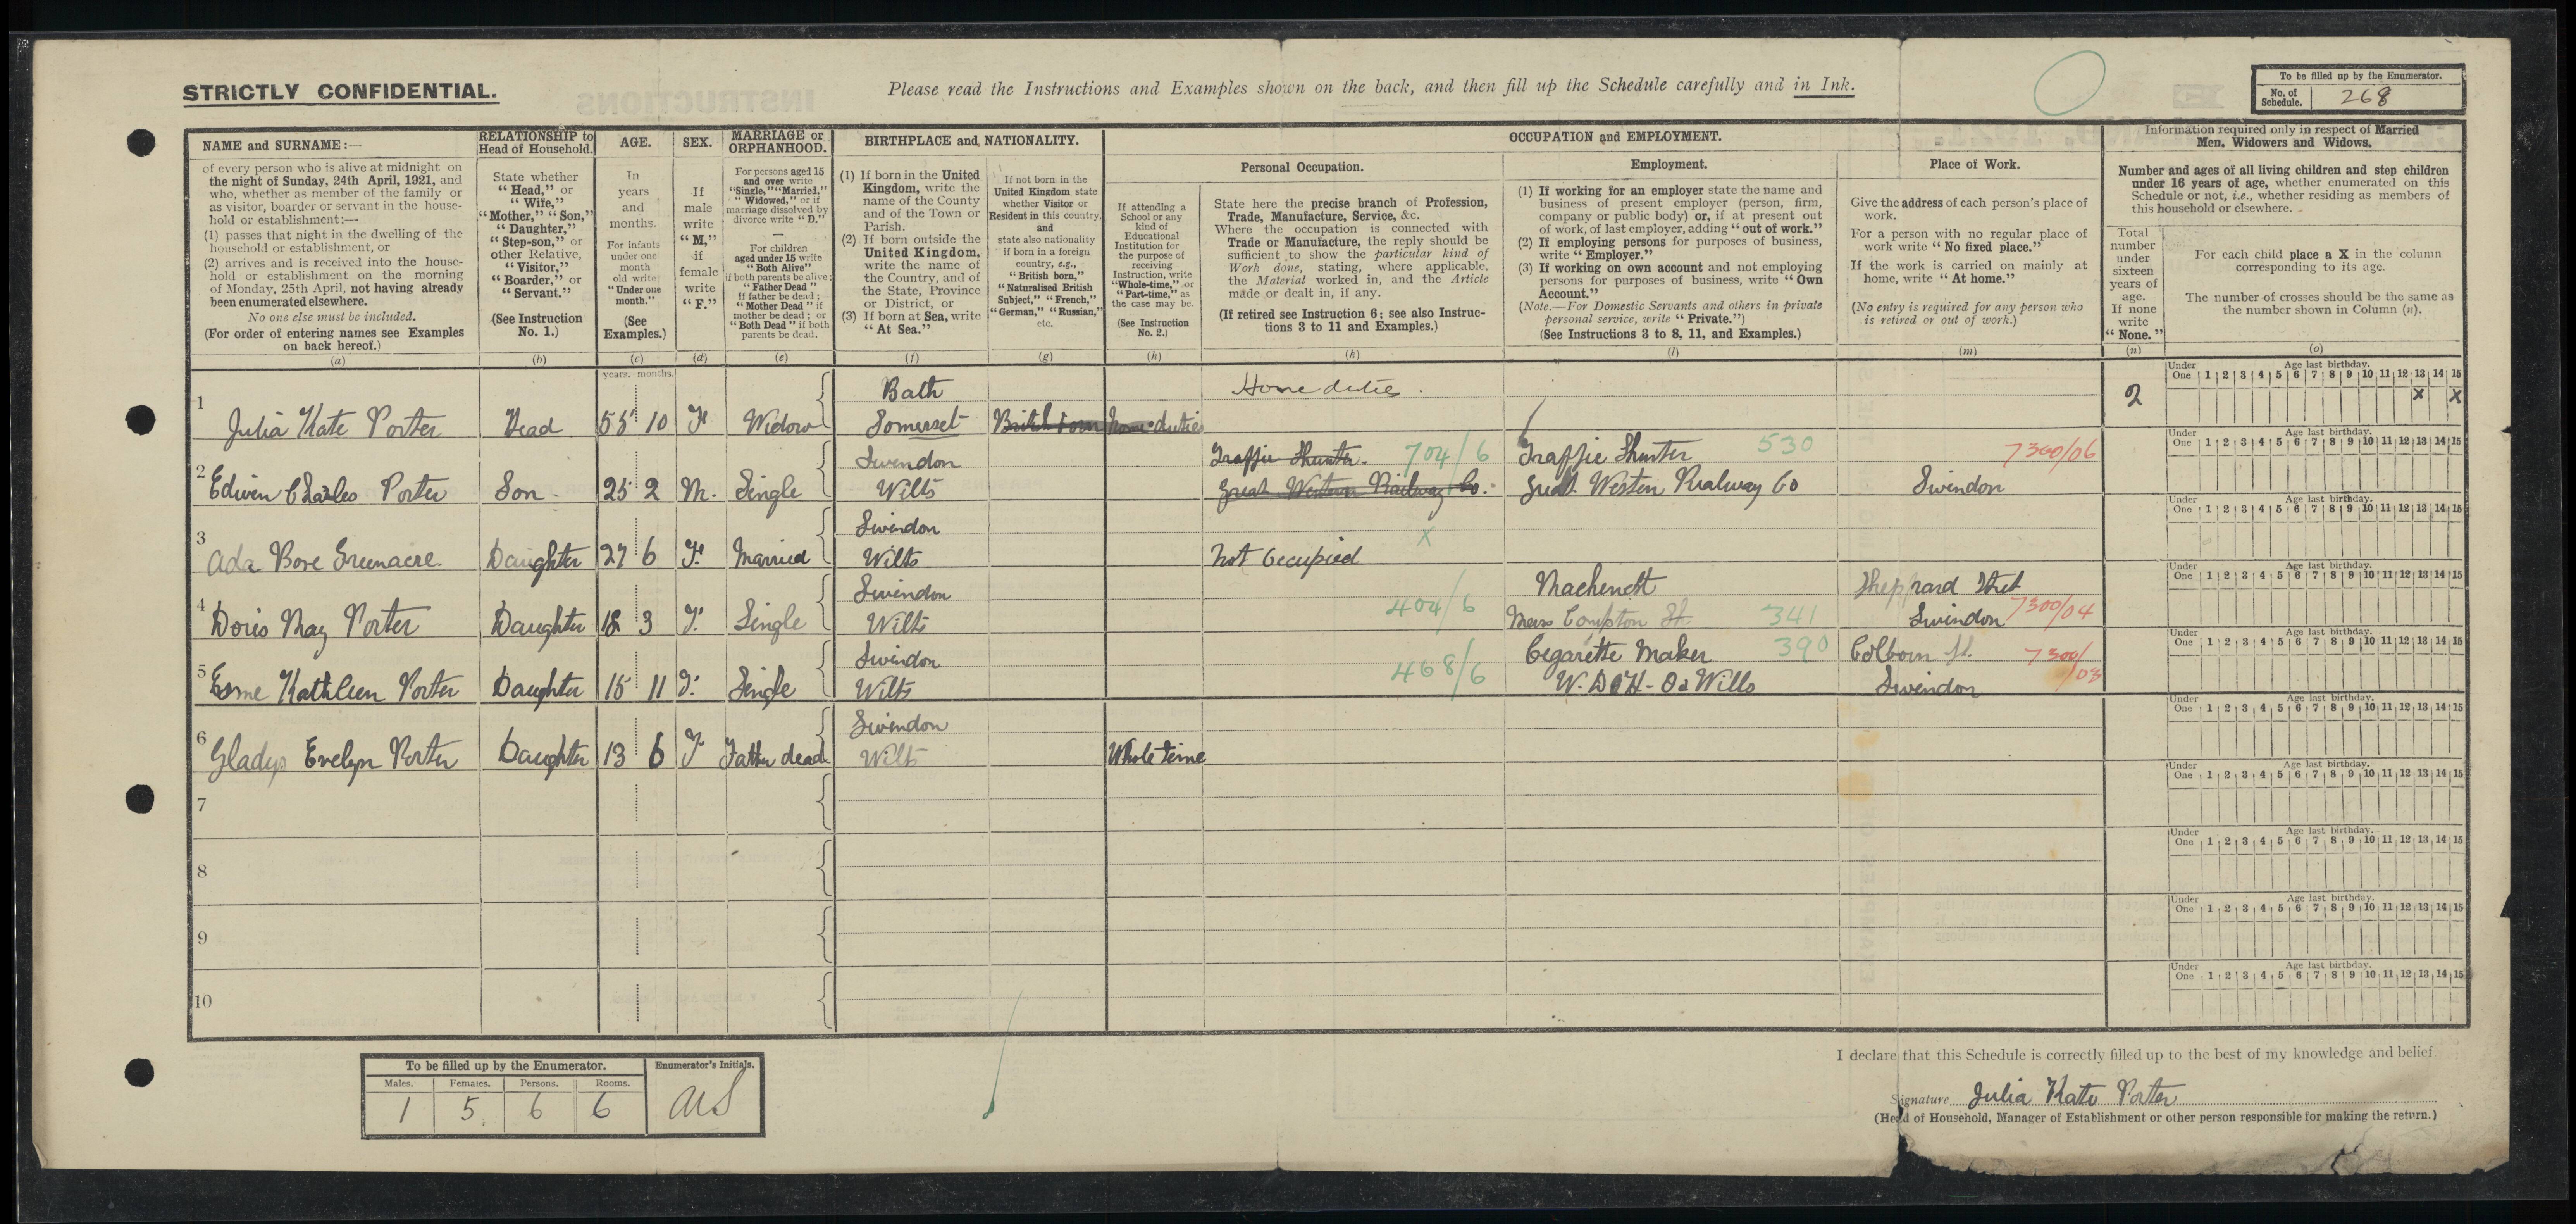 STRICTLY CONFIDENTIAL.
Please read the Instructions and Examples shown on the back, and then fill up the Schedule carefully and in Ink.
To be filled up by the Enumerator.
No. of Schedule. 268
NAME and SURNAME:—
of every person who is alive at midnight on
the night of Sunday, 24th April, 1921, and
who, whether as member of the family or
as visitor, boarder or servant in the house-
hold or establishment:—
(1) passes that night in the dwelling of the
household or establishment, or
(2) arrives and is received into the house-
hold or establishment on the morning
of Monday, 25th April, not having already
been enumerated elsewhere.
No one else must be included.
(For order of entering names see Examples
on back hereof.)
(a)
RELATIONSHIP to
Head of Household.
State whether
"Head," or
"Wife,"
"Mother," "Son,"
"Daughter,"
"Step-son," or
other Relative,
"Visitor,"
"Boarder," or
"Servant."
(See Instruction
No. 1.)
(b)
AGE.
In
years
and
months.
For infants
under one
month
old write
"Under one
month."
(See
Examples.)
(c)
SEX.
If
male
write
"M,"
if
female
write
"F."
(d)
MARRIAGE or
ORPHANHOOD.
For persons aged 15
and over write
"Single," "Married,"
"Widowed," or if
marriage dissolved by
divorce write "D."
For children
aged under 15 write
"Both Alive"
if both parents be alive;
"Father Dead"
if father be dead;
"Mother Dead" if
mother be dead; or
"Both Dead" if both
parents be dead.
(e)
BIRTHPLACE and NATIONALITY.
(1) If born in the United
Kingdom, write the
name of the County
and of the Town or
Parish.
(2) If born outside the
United Kingdom,
write the name of
the Country, and of
the State, Province
or District, or
(3) If born at Sea, write
"At Sea."
(f)
If not born in the
United Kingdom state
whether Visitor or
Resident in this country,
and
state also nationality
if born in a foreign
country, e.g.,
"British born,"
"Naturalised British
Subject," "French,"
"German," "Russian,"
etc.
(g)
OCCUPATION and EMPLOYMENT.
If attending a
School or any
kind of
Educational
Institution for
the purpose of
receiving
Instruction, write
"Whole-time," or
"Part-time," as
the case may be.
(See Instruction
No. 2.)
(h)
Personal Occupation.
State here the precise branch of Profession,
Trade, Manufacture, Service, &c.
Where the occupation is connected with
Trade or Manufacture, the reply should be
sufficient to show the particular kind of
Work done, stating, where applicable,
the Material worked in, and the Article
made or dealt in, if any.
(If retired see Instruction 6; see also Instruc-
tions 3 to 11 and Examples.)
(k)
Employment.
(1) If working for an employer state the name and
business of present employer (person, firm,
company or public body) or, if at present out
of work, of last employer, adding "out of work."
(2) If employing persons for purposes of business,
write "Employer."
(3) If working on own account and not employing
persons for purposes of business, write "Own
Account."
(Note.—For Domestic Servants and others in private
personal service, write "Private.")
(See Instructions 3 to 8, 11, and Examples.)
(l)
Place of Work.
Give the address of each person's place of
work.
For a person with no regular place of
work write "No fixed place."
If the work is carried on mainly at
home, write "At home."
(No entry is required for any person who
is retired or out of work.)
(m)
Information required only in respect of Married
Men, Widowers and Widows.
Number and ages of all living children and step children
under 16 years of age, whether enumerated on this
Schedule or not, i.e., whether residing as members of
this household or elsewhere.
Total
number
under
sixteen
years of
age.
If none
write
"None."
(n)
For each child place a X in the column
corresponding to its age.
The number of crosses should be the same as
the number shown in Column (n).
(o)
years. months.
Under One Age last birthday. 1 2 3 4 5 6 7 8 9 10 11 12 13 14 15
1 Bath Home duties 2 x x
Julia Kate Porter Head 55 10 F Widow Somerset British born home duties
Under One Age last birthday. 1 2 3 4 5 6 7 8 9 10 11 12 13 14 15
2 Swindon Traffic Shunter. 704/6 Traffic Shunter 530 7360/06
Edwin Charles Porter Son 25 2 M. Single Wilts Great Western Railway Co. Great Western Railway Co Swindon
Under One Age last birthday. 1 2 3 4 5 6 7 8 9 10 11 12 13 14 15
3 Swindon x
Ada Bore Greenacre Daughter 27 6 F. Married Wilts Not Occupied
Under One Age last birthday. 1 2 3 4 5 6 7 8 9 10 11 12 13 14 15
4 Swindon Machenest Sheppard Street
Doris May Porter Daughter 18 3 F. Single Wilts 404/6 Compton St. 341 Swindon 7300/04
Under One Age last birthday. 1 2 3 4 5 6 7 8 9 10 11 12 13 14 15
5 Swindon 468/6 Cegarette Maker 390 Colborn St. 7300/03
Esme Kathleen Porter Daughter 15 11 F. Single Wilts W. D & H - O & Wills Swindon
Under One Age last birthday. 1 2 3 4 5 6 7 8 9 10 11 12 13 14 15
6 Swindon
Gladys Evelyn Porter Daughter 13 6 F Father dead Wilts Whole time
Under One Age last birthday. 1 2 3 4 5 6 7 8 9 10 11 12 13 14 15
7
Under One Age last birthday. 1 2 3 4 5 6 7 8 9 10 11 12 13 14 15
8
Under One Age last birthday. 1 2 3 4 5 6 7 8 9 10 11 12 13 14 15
9
Under One Age last birthday. 1 2 3 4 5 6 7 8 9 10 11 12 13 14 15
10
To be filled up by the Enumerator.
Males. Females. Persons. Rooms.
1 5 6 6
Enumerator's Initials.
I declare that this Schedule is correctly filled up to the best of my knowledge and belief.
Signature Julia Kate Porter
(Head of Household, Manager of Establishment or other person responsible for making the return.)